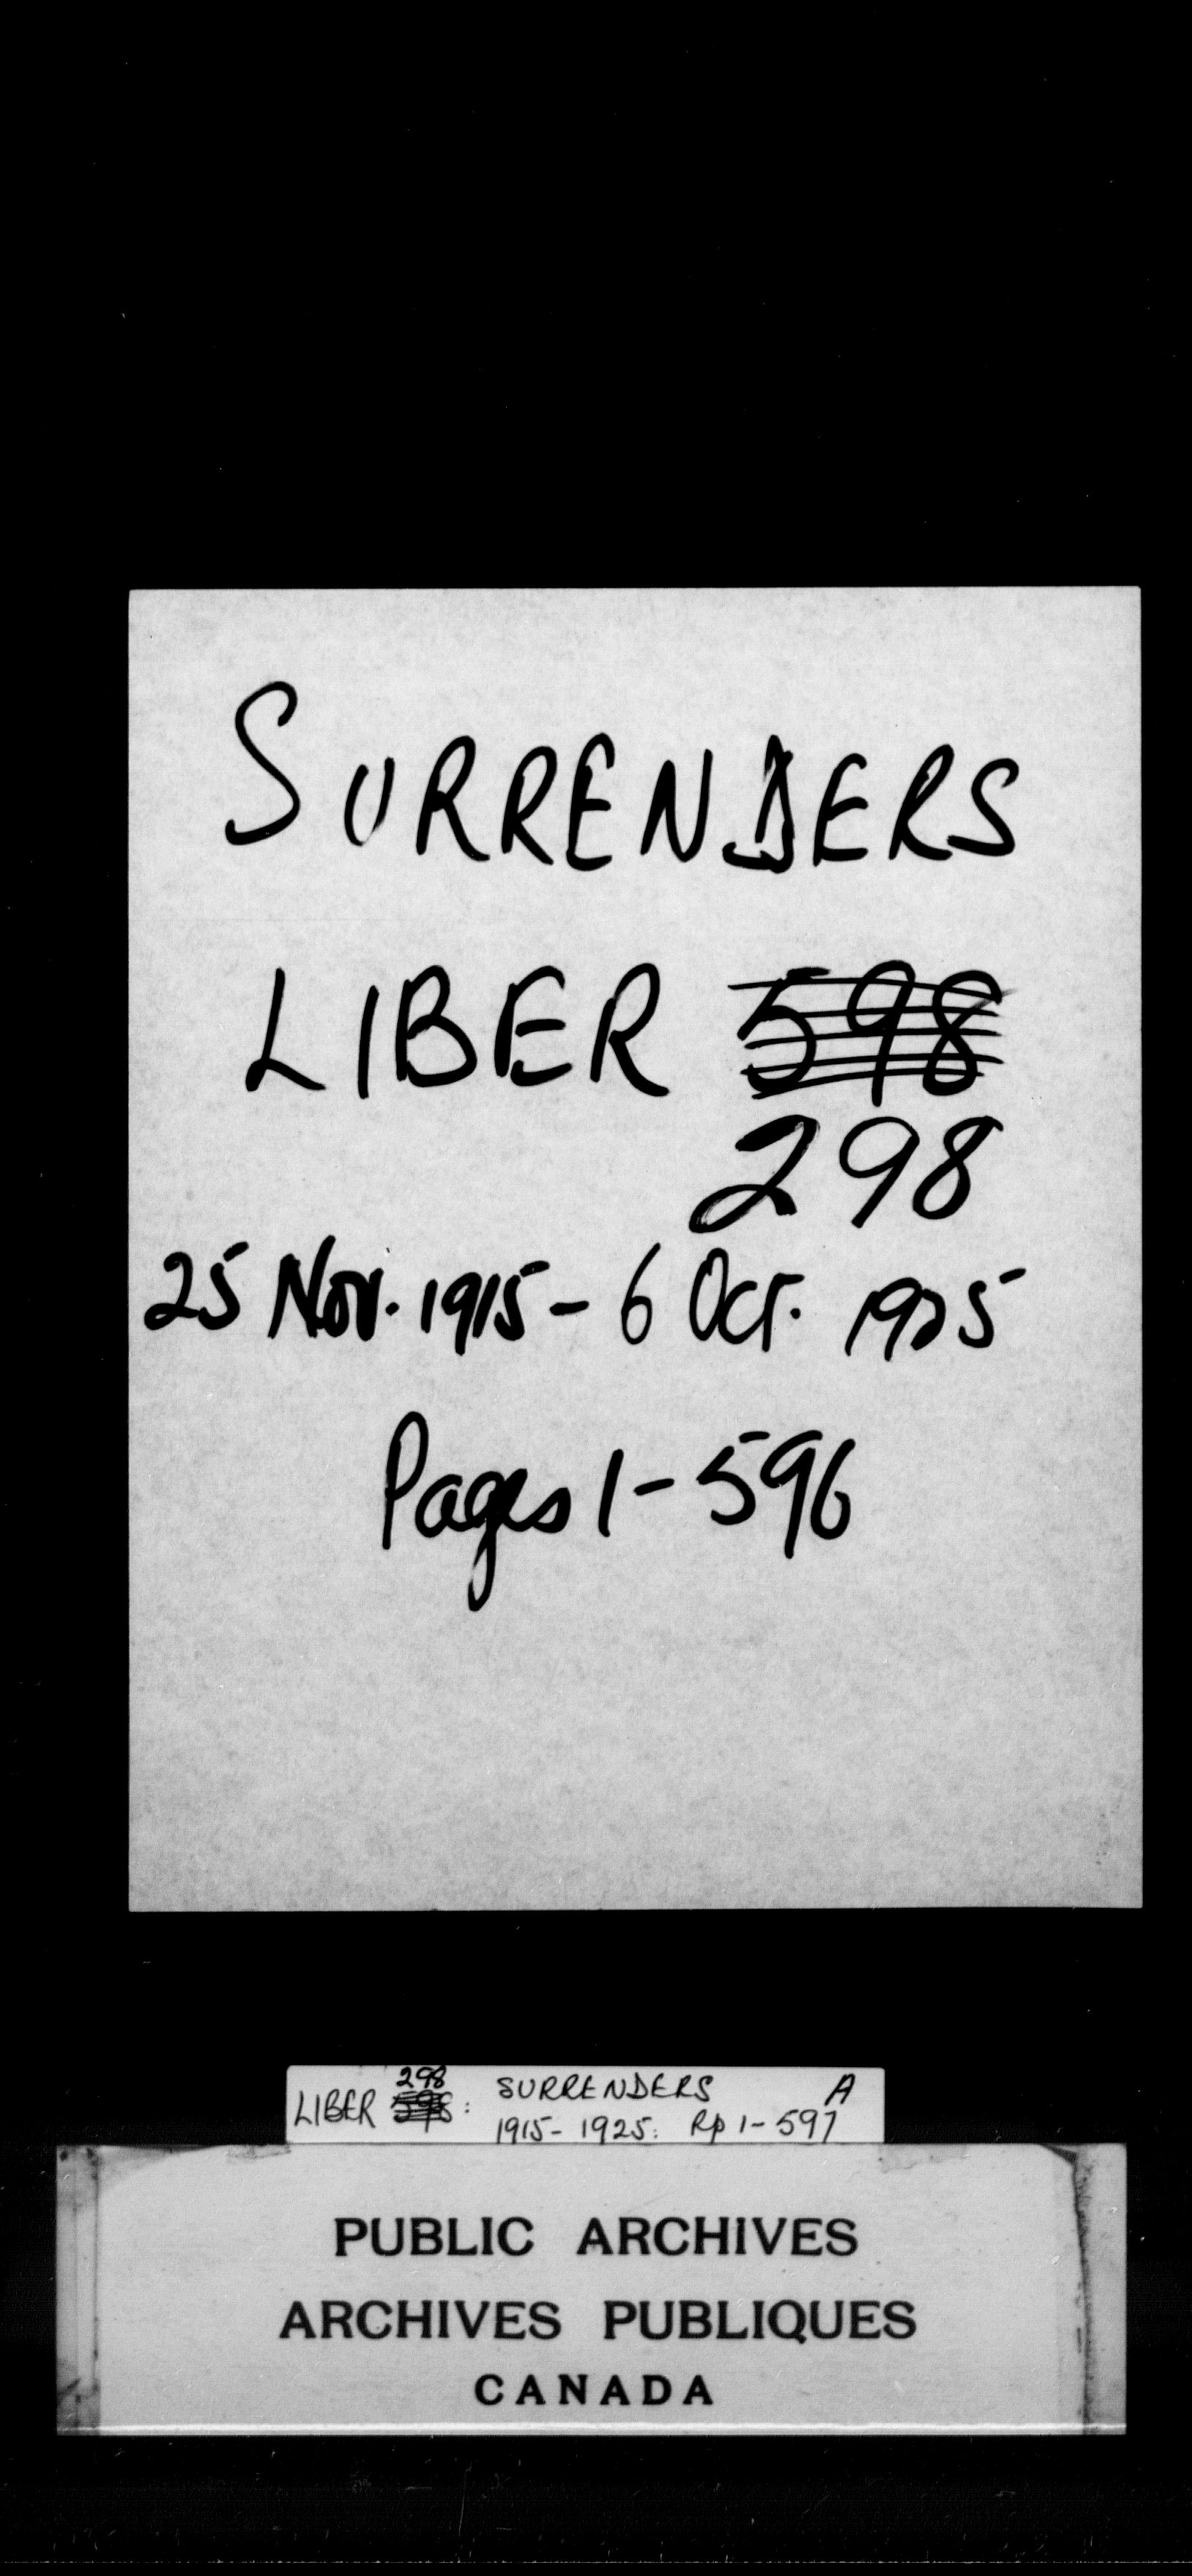 SURRENDERS
LIBER 598
298
25 Nov. 1915 - 6 Oct. 1925
Pages 1 - 596
298
LIBER 598: SURRENDERS A
1915 - 1925: Pp 1 - 597
PUBLIC ARCHIVES
ARCHIVES PUBLIQUES
CANADA